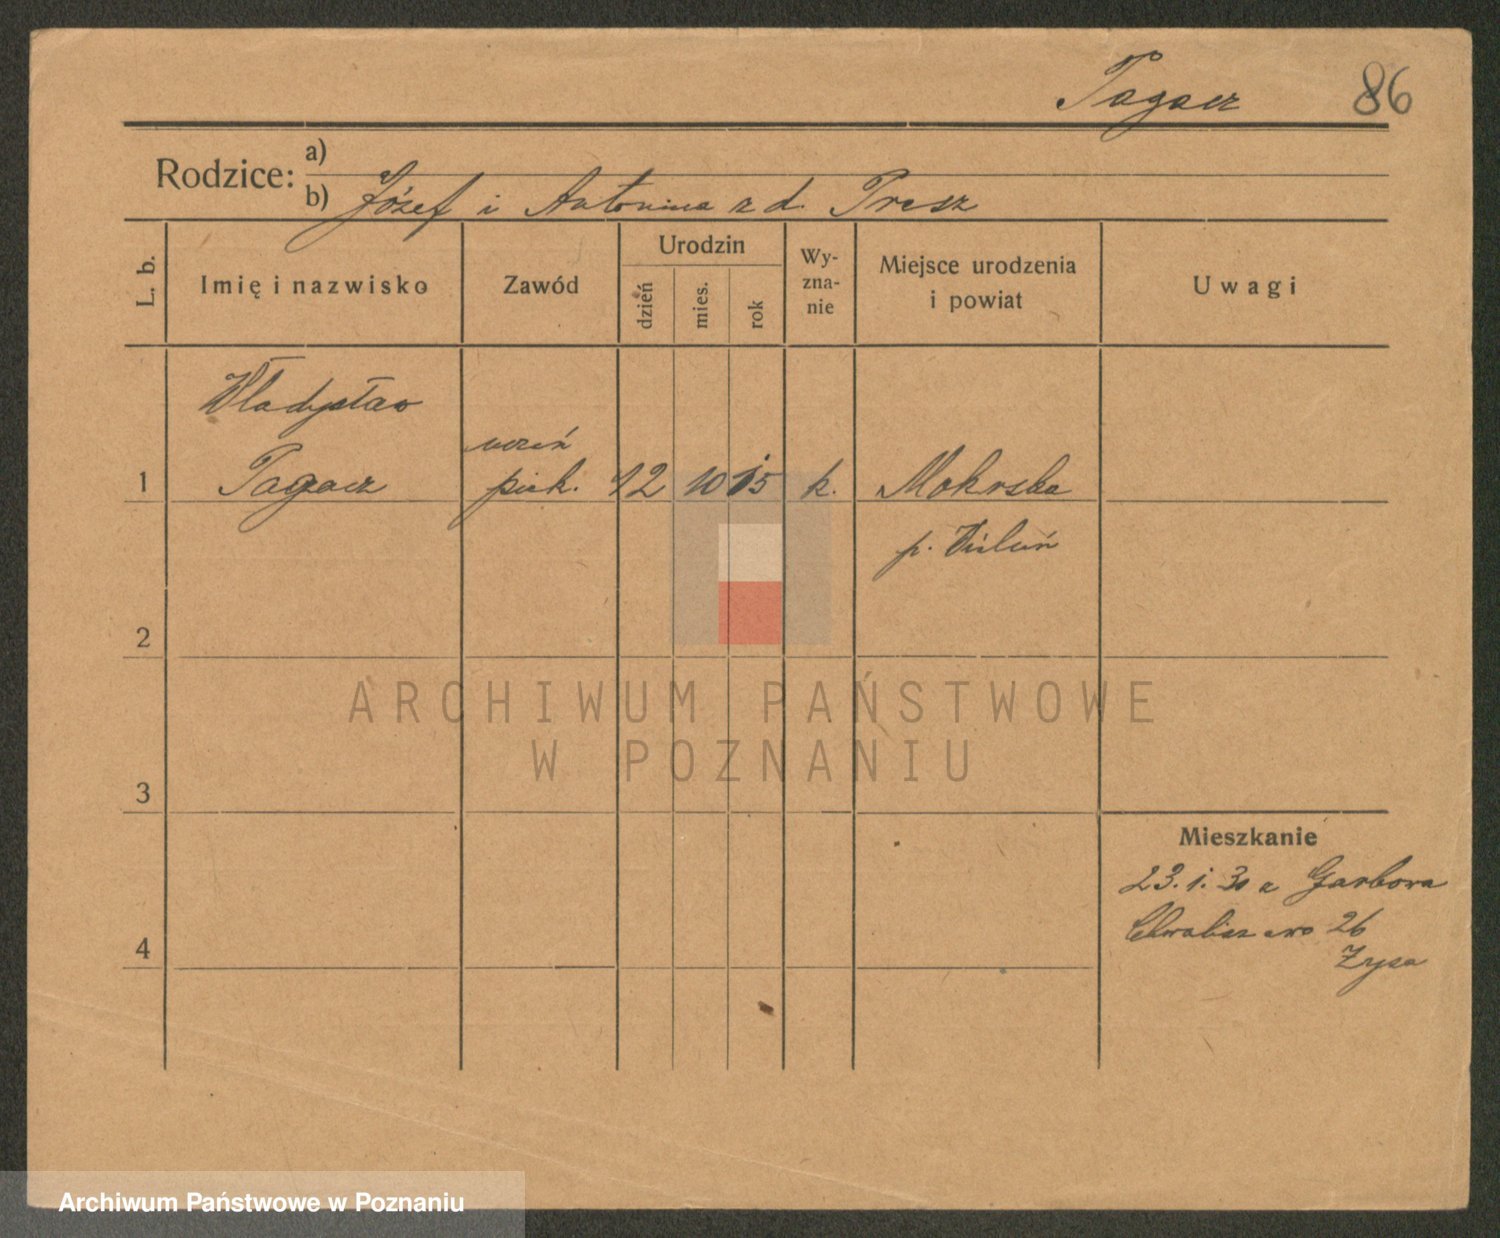 Tagacz 86
Rodzice: a)
b) Józef i Antonina z d. Presz
L. b.
Imię i nazwisko
Zawód
Urodzin
dzień
mies.
rok
Wy-
zna-
nie
Miejsce urodzenia
i powiat
Uwagi
Władysław
uczeń
1 Tagacz piek. 12 10 15 k. Mokrska
p. Wieluń
2
ARCHIWUM PAŃSTWOWE
W POZNANIU
3
Mieszkanie
23. 1. 30 z Garbora
Chwaliszewo 26
4
Zysa
Archiwum Państwowe w Poznaniu